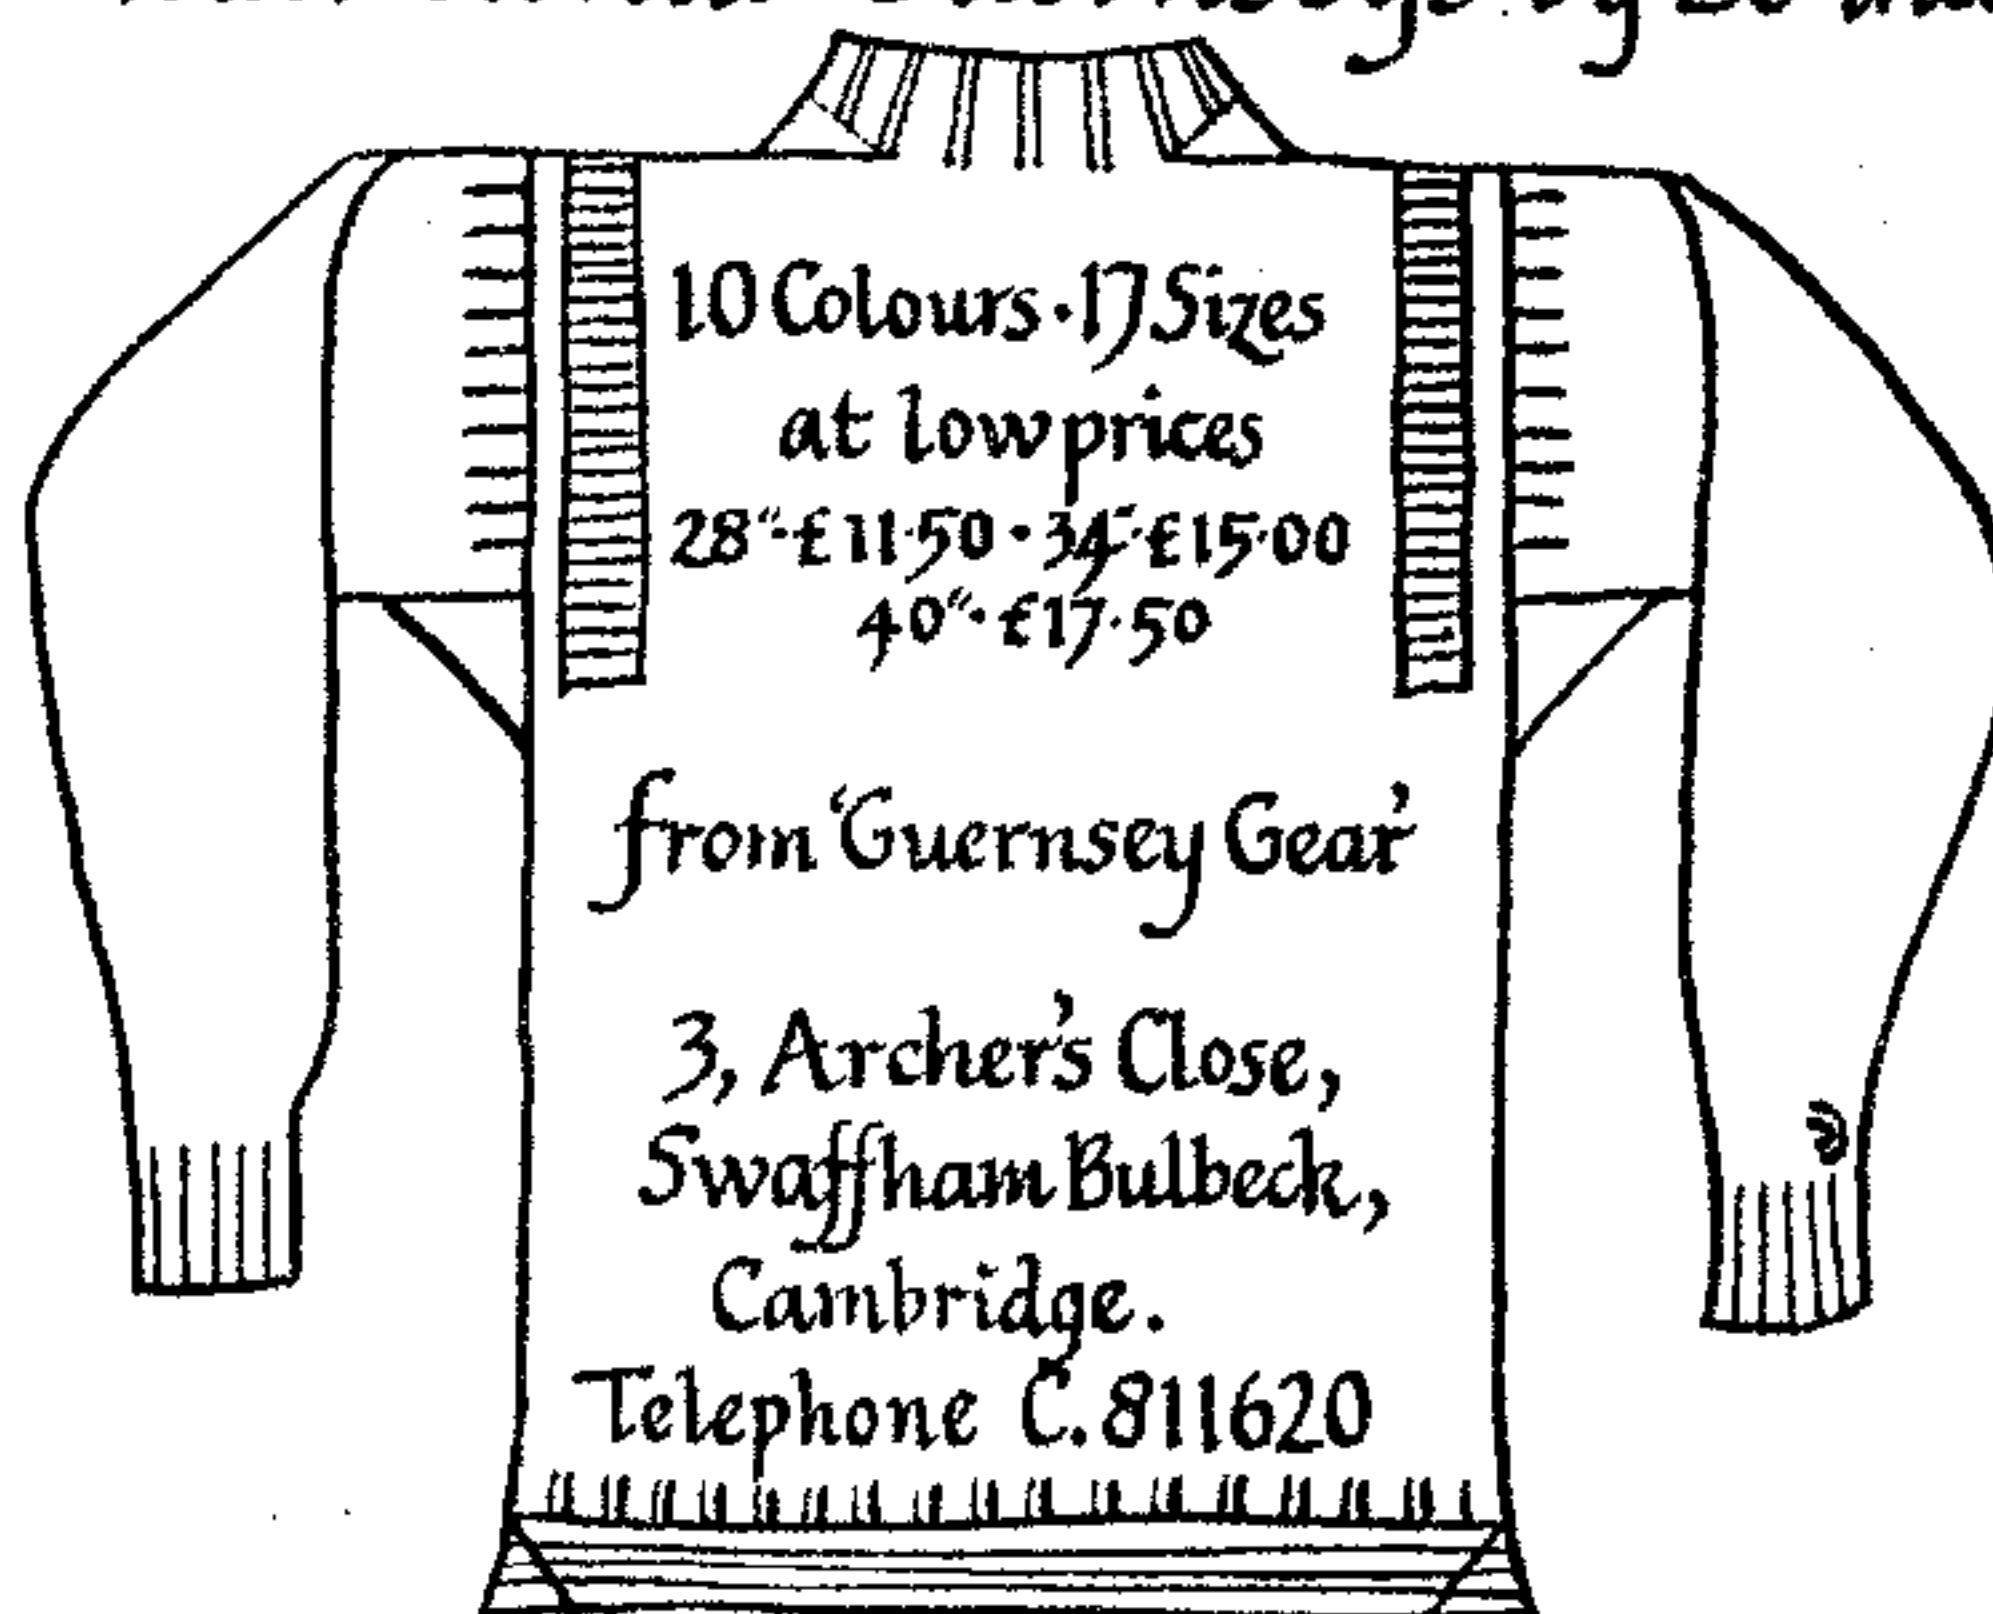 10 Colours · 17 Sizes
at low prices
28"· £11·50 · 34"· £15·00
40"· £17·50
from 'Guernsey Gear'
3, Archer's Close,
Swaffham Bulbeck,
Cambridge.
Telephone C. 811620